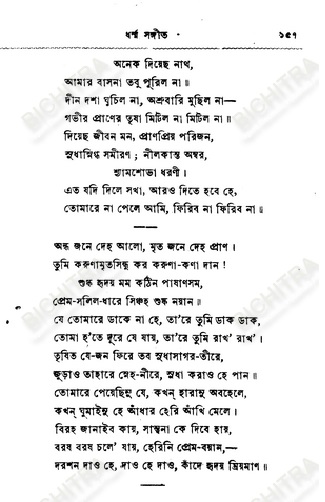 ধর্ম্ম সঙ্গীত
১৫৭
অনেক দিয়েছ নাথ,
আমার বাসনা তবু পূরিল না॥
দীন দশা ঘুচিল না, অশ্রুবারি মুছিল না—
গভীর প্রাণের তৃষা মিটিল না মিটিল না॥
দিয়েছ জীবন মন, প্রাণপ্রিয় পরিজন,
সুধাস্নিগ্ধ সমীরণ; নীলকান্ত অম্বর,
শ্যামশোভা ধরণী।
এত যদি দিলে সখা, আরও দিতে হবে হে,
তোমারে না পেলে আমি, ফিরিব না ফিরিব না॥
অন্ধ জনে দেহ আলো, মৃত জনে দেহ প্রাণ।
তুমি করুণামৃতসিন্ধু কর করুণা-কণা দান!
শুষ্ক হৃদয় মম কঠিন পাষাণসম,
প্রেম-সলিল-ধারে সিঞ্চহ শুষ্ক নয়ান॥
যে তোমারে ডাকে না হে, তা'রে তুমি ডাক ডাক,
তোমা হ'তে দূরে যে যায়, তা'রে তুমি রাখ' রাখ'।
তৃষিত যে-জন ফিরে তব সুধাসাগর-তীরে,
জুড়াও তাহারে স্নেহ-নীরে, সুধা করাও হে পান॥
তোমারে পেয়েছিনু যে, কখন্ হারানু অবহেলে,
কখন্ ঘুমাইনু হে আঁধার হেরি আঁখি মেলে।
বিরহ জানাইব কায়, সান্ত্বনা কে দিবে হায়,
বরষ বরষ চলে' যায়, হেরিনি প্রেম-বয়ান,—
দরশন দাও হে, দাও হে দাও, কাঁদে হৃদয় ম্রিয়মাণ॥
BICHITRA